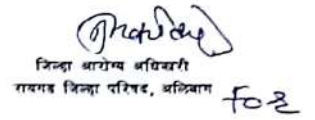 जिल्हा आरोग्य अधिकारी
रायगड जिल्हा परिषद, अलिबाग
For